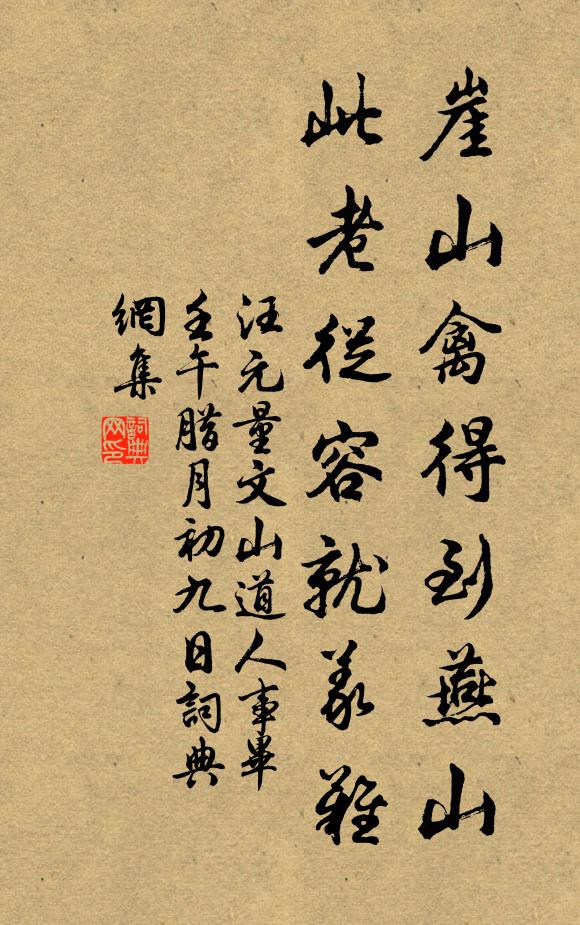 崖山禽得到燕山
此老從容就義難
汪元量文山道人事畢
壬午腊月初九日詞典
網集
詞典網印